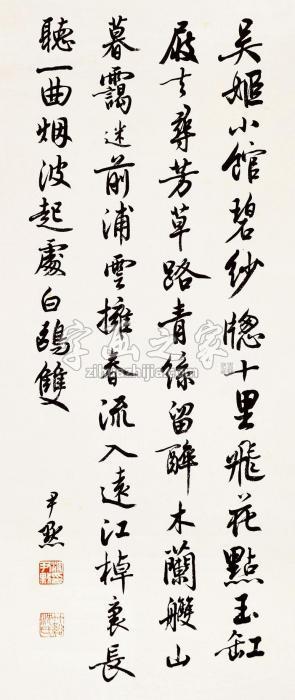 吴姬小館碧紗牕十里飛花點玉缸
屐去尋芳草路青絲留醉木蘭艭山
暮靄迷前浦雲擁春流入遠江棹裏長
聽一曲烟波起處白鷗雙
尹默
字画之家